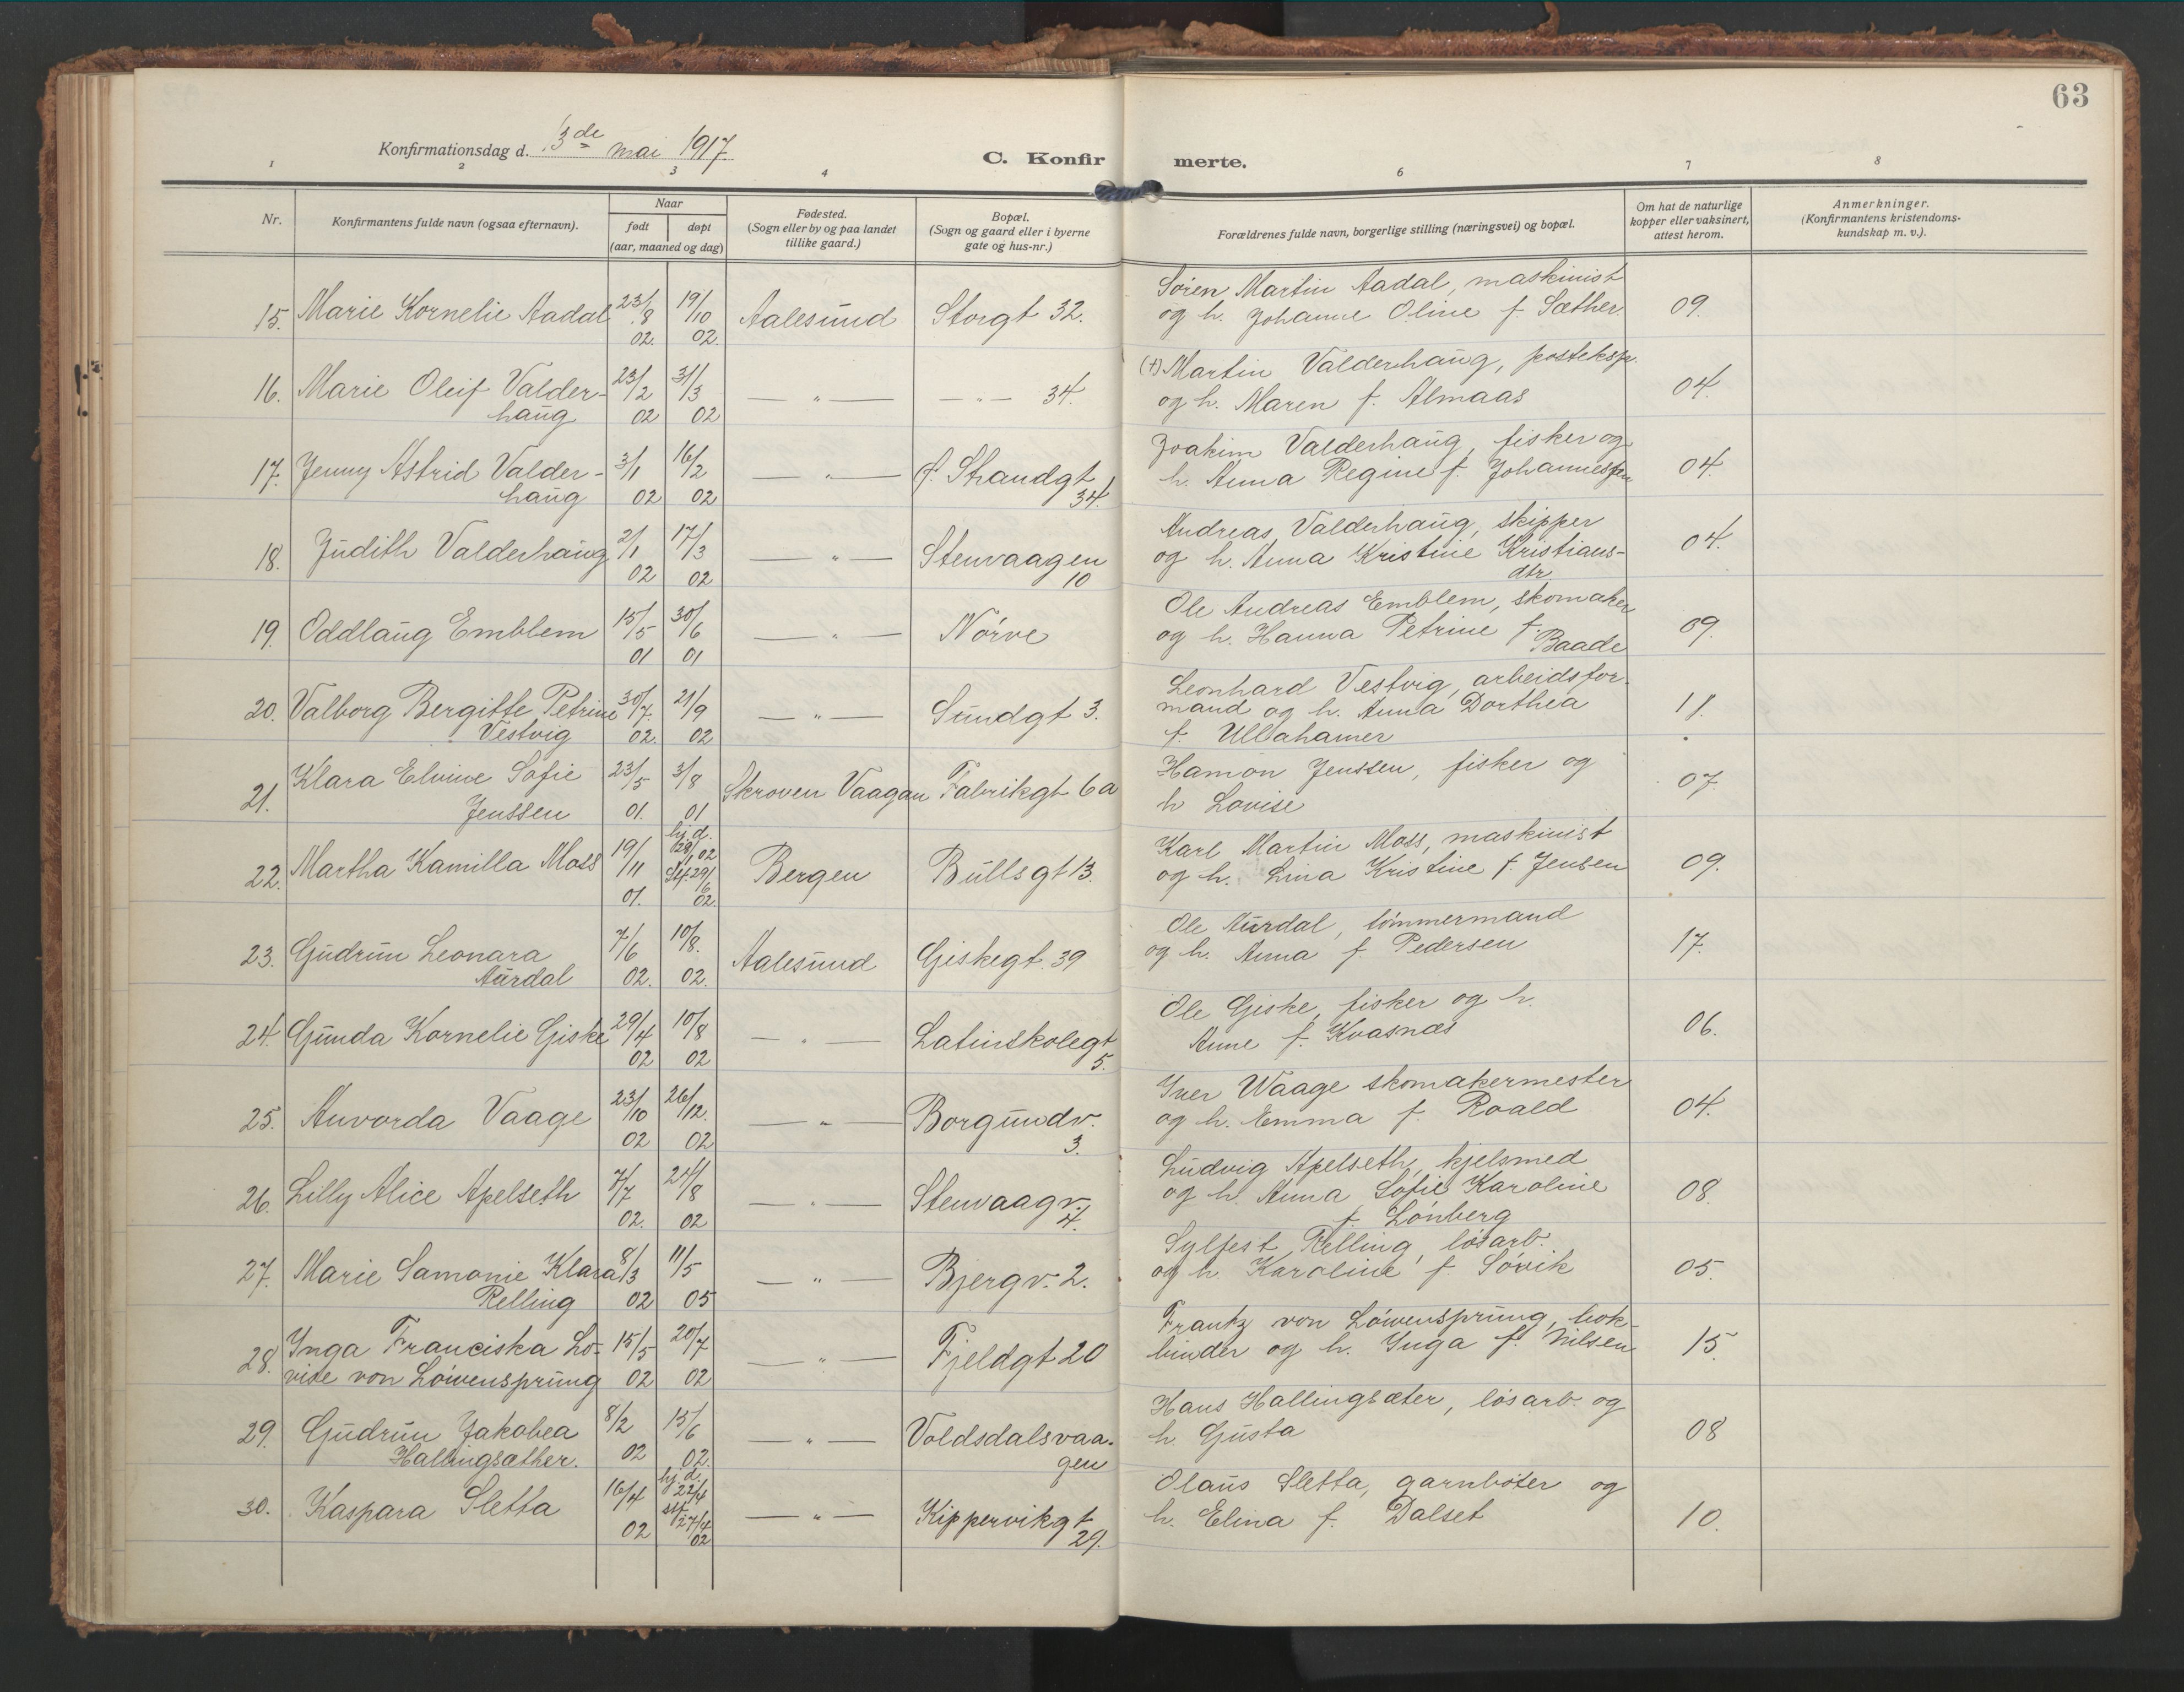 63
Konfirmationsdag d. 13de mai 1917.
C. Konfirmerte.
1 2 3 4 6 7 8
Nr.
Konfirmantens fulde navn (ogsaa efternavn).
Naar
født døpt
(aar, maaned og dag)
Fødested.
(Sogn eller by og paa landet
tillike gaard.)
Bopæl.
(Sogn og gaard eller i byerne
gate og hus-nr.)
Forældrenes fulde navn, borgerlige stilling (næringsvei) og bopæl.
Om hat de naturlige
kopper eller vaksinert,
attest herom.
Anmerkninger.
(Konfirmantens kristendoms-
kundskap m. v.).
15. Marie Kornelie Aadal 23/8 02. 19/10 02. Aalesund Storgt 32. Søren Martin Aadal, maskinist
og h. Johanne Oline f. Sæther. 09.
16. Marie Oleif Valder-
haug 23/2 02 31/3 02 — " — — " — 34. (†) Martin Valderhaug, posteksp.
og h. Maren f. Almaas 04.
17. Jenny Astrid Valder-
haug 3/1 02 16/2 02 — " — f. Strandgt
34. Joakim Valderhaug, fisker og
h. Anna Regine f. Johannessen 04.
18. Judith Valderhaug 2/1 02 17/3 02 — " — Stenvaagen
10 Andreas Valderhaug, skipper
og h. Anna Kristine Kristians-
dtr. 04.
19. Oddlaug Emblem 15/5 01 30/6 01 — " — Nørve Ole Andreas Emblem, skomaker
og h. Hanna Petrine f.
Baade 09.
20. Valborg Bergitte Petrine
Vestvig 30/7. 02. 21/9 02 — " — Sundgt 3. Leonhard Vestvig, arbeidsfor-
mand og h. Anna Dorthea
f. Ullahamer 11.
21. Klara Elvine Sofie
Jenssen 23/5 01. 3/8 01 Skroven Vaagan Fabrikgt 6a Hamon Jenssen, fisker og
h. Lovise 07.
22. Martha Kamilla Moss 19/11 01. hj. d. 02 29/6 02. Bergen Bullsgt 13. Karl Martin Moss, maskinist
og h. Lina Kristine f. Jensen 09.
23. Gudrun Leonara
Aurdal 7/6 02. 10/8. 02. Aalesund Giskegt. 39 Ole Aurdal, tømmermand
og h. Anna f. Pedersen 17.
24. Gunda Kornelie Giske 29/4 02 10/8 02 — " — Latinskolegt
5. Ole Giske, fisker og h.
Anne f. Kvasnæs 06.
25. Anvorda Vaage 23/10 02 26/12. 02 — " — Borgundv.
3. Iver Waage skomakermester
og h. Emma f. Roald 04.
26. Lilly Alice Apelseth 7/7 02. 24/8 02 — " — Stenvaagv.
4. Ludvig Apelseth, kjelsmed
og h. Anna Sofie Karoline
f. Lønberg 08.
27. Marie Samonie Klara
Relling 8/3 02 11/5 05 — " — Bjergv. 2. Sylfest Relling, løsarb.
og h. Karoline f. Søvik 05.
28. Ynga Franciska Lo-
vise von Löwensprung 15/5 02 20/7 02 — " — Fjeldgt 20 Frantz von Löwensprung, bok-
binder og h. Ynga f. Nilsen 15.
29. Gudrun Jakobea
Hallingsæther. 8/2 02 15/6 02. — " — Voldsdalsvaa-
gen Hans Hallingsæter, løsarb. og
h. Gusta 08
30. Kaspara Sletta 16/4 02 hj. d. 22/4 st. 27/4 02 — " — Kippervikgt
29. Olaus Sletta, garnbøter og
h. Elina f. Dalset 10.